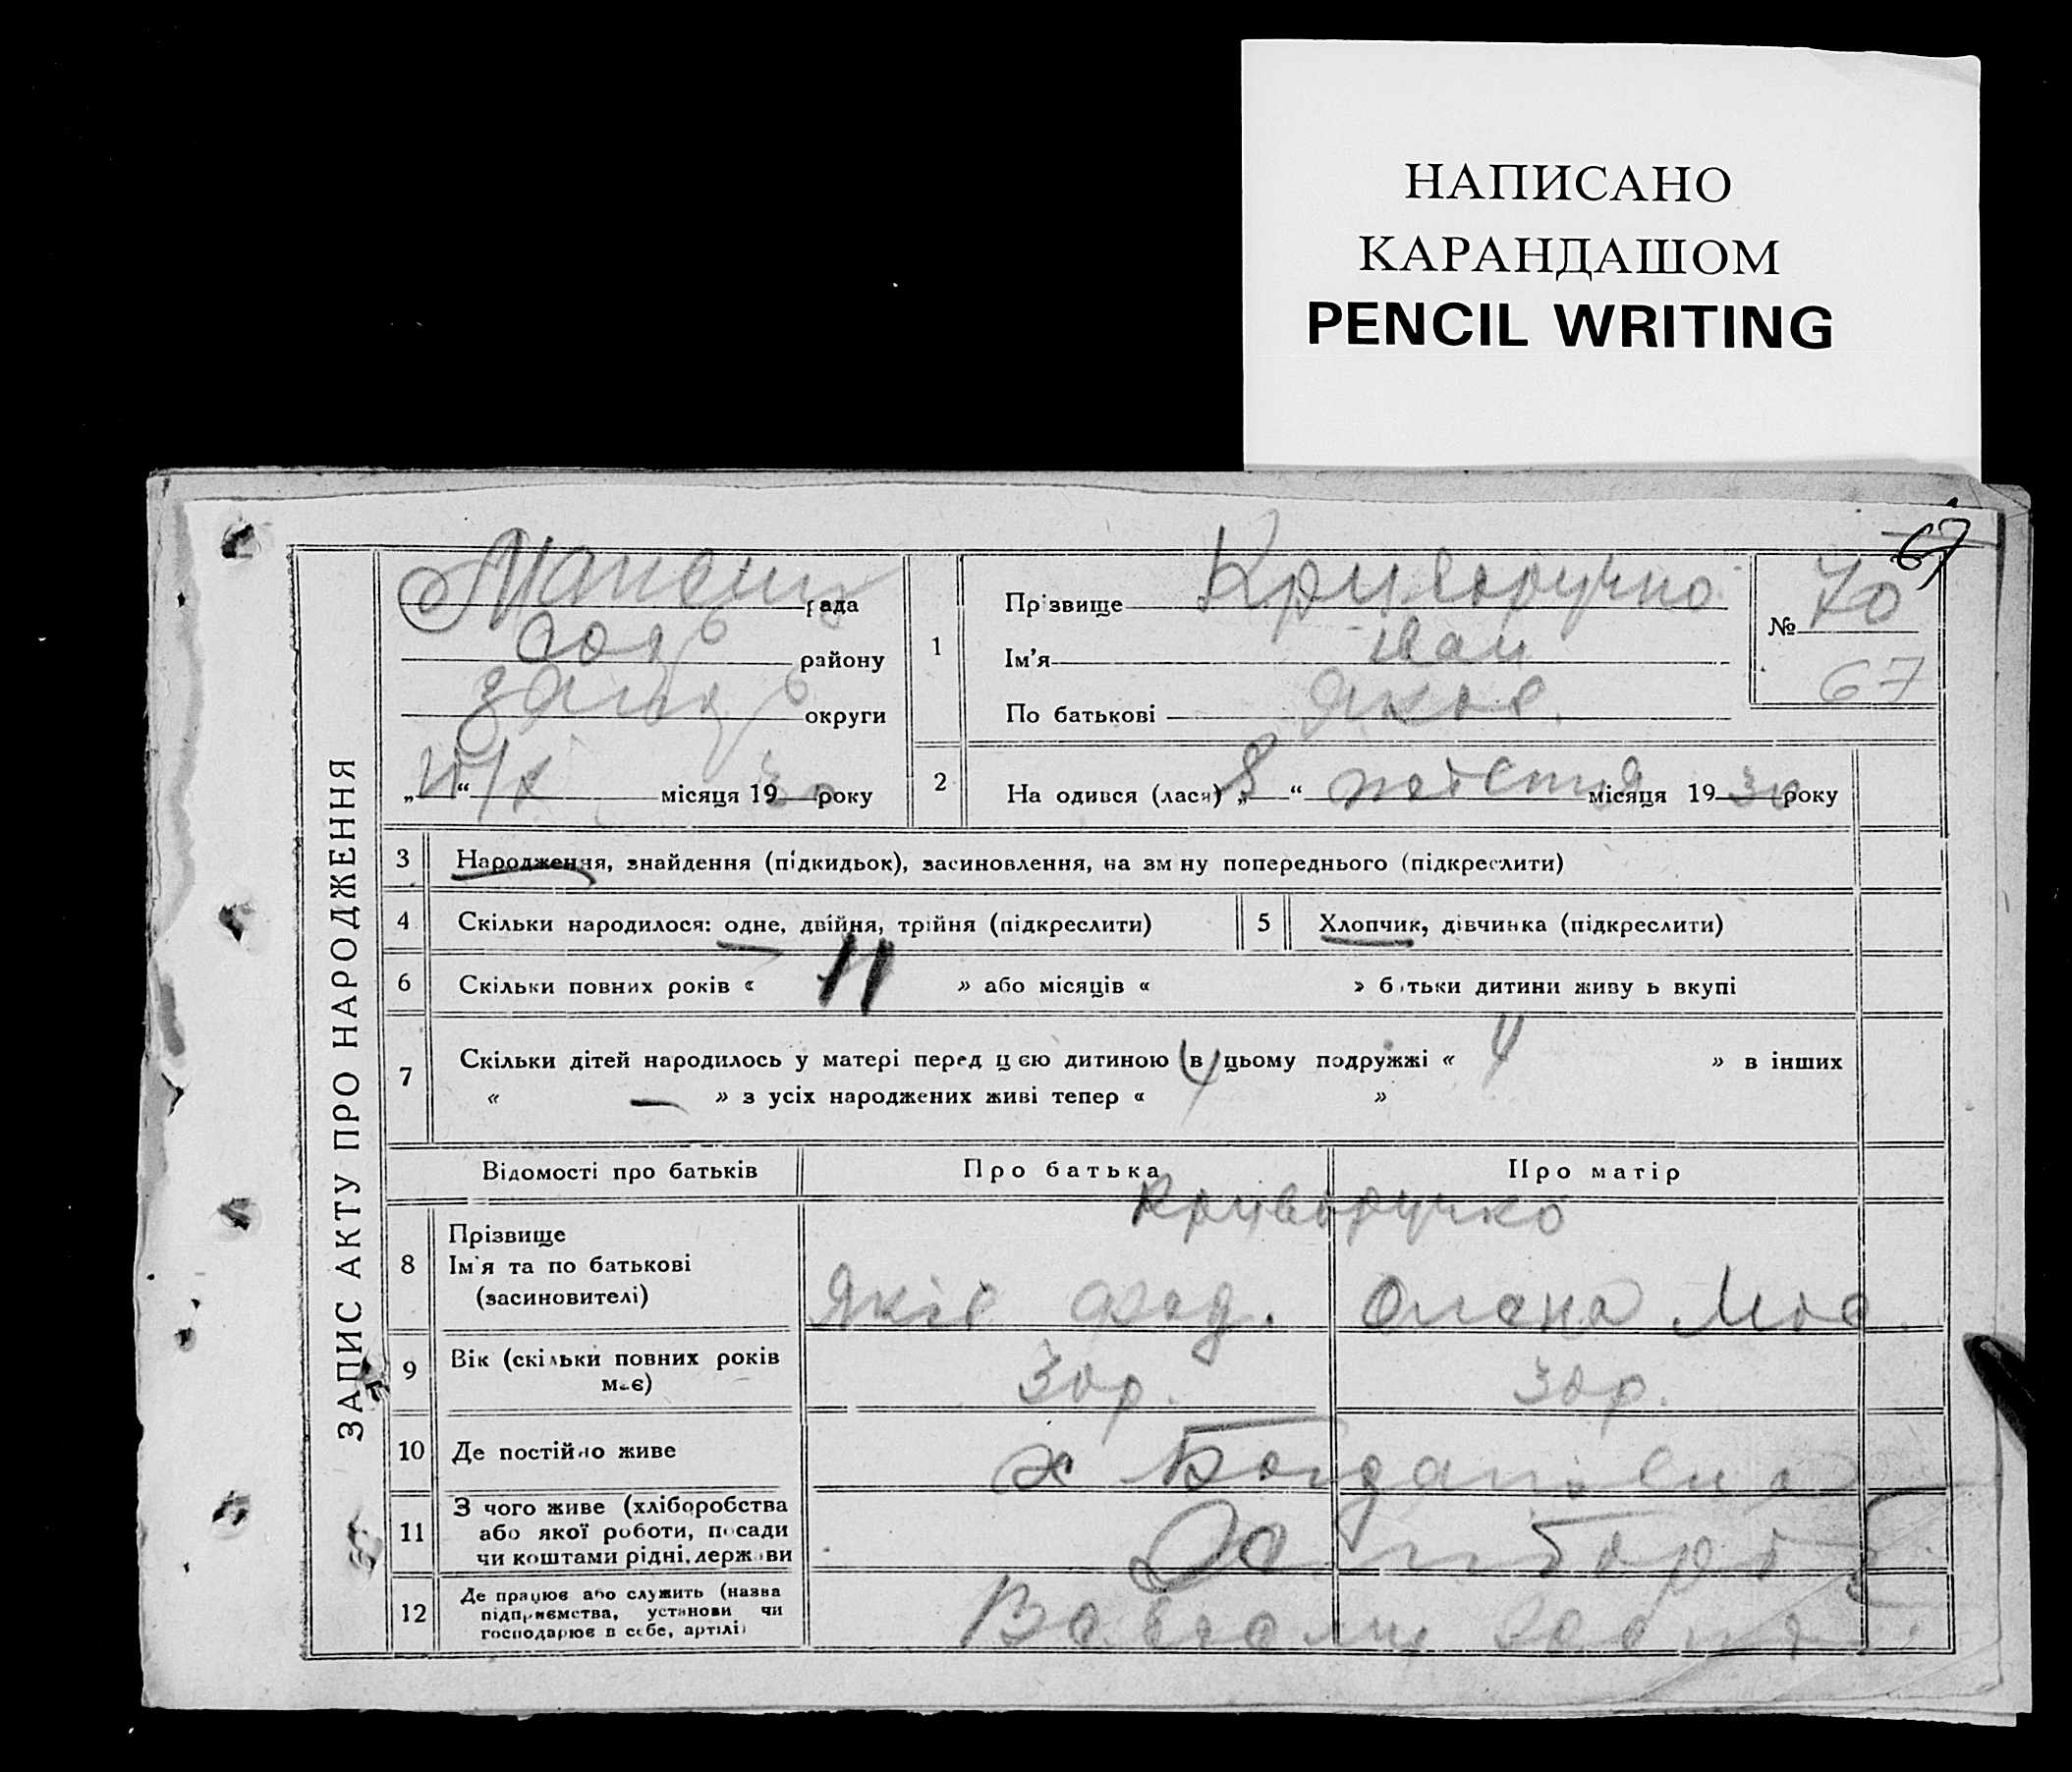 НАПИСАНО
КАРАНДАШОМ
PENCIL WRITING
67
ЗАПИС АКТУ ПРО НАРОДЖЕННЯ
рада
району
округи
„ “ місяця 1930 року
1
Прізвище Криворучко
Ім'я Іван
По батькові Яков.
№ 70
67
2
На одився (лася) „8“ місяця 1930 року
3 Народження, знайдення (підкидьок), засиновлення, на зм ну попереднього (підкреслити)
4 Скільки народилося: одне, двійня, трійня (підкреслити)
5 Хлопчик, дівчинка (підкреслити)
6 Скільки повних років « 11 » або місяців « » б тьки дитини живу ь вкупі
7 Скільки дітей народилось у матері перед цією дитиною (в цьому подружжі « 4 » в інших
« — » з усіх народжених живі тепер « 4 »
Відомості про батьків Про батька Про матір
Криворучко
8 Прізвище
Ім'я та по батькові
(засиновителі)
Яків Олена
9 Вік (скільки повних років
має)
30 р. 30 р.
10 Де постійно живе
х Богданівка
11 З чого живе (хліборобства
або якої роботи, посади
чи коштами рідні, держави
12 Де працює або служить (назва
підприємства, установи чи
господарює в себе, артілі)